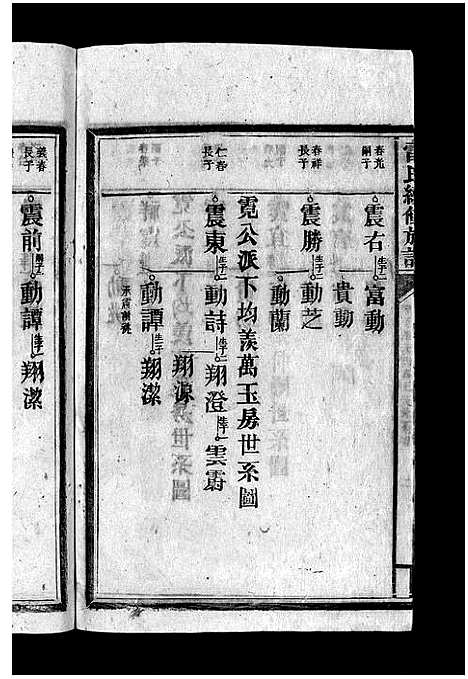 雷氏續修族譜
春光嗣子 震右 生子一 富動
貴動
春祥長子 震勝 生子二 動芝
動蘭
霓公派下均羨萬玉房世系圖
仁春長子 震東 生子二 動詩 生子二 翔澄 生子一 雲霨
翔源
動譚 生子一 翔潔
義春長子 震前 嗣子一 動譚 生子一 翔潔